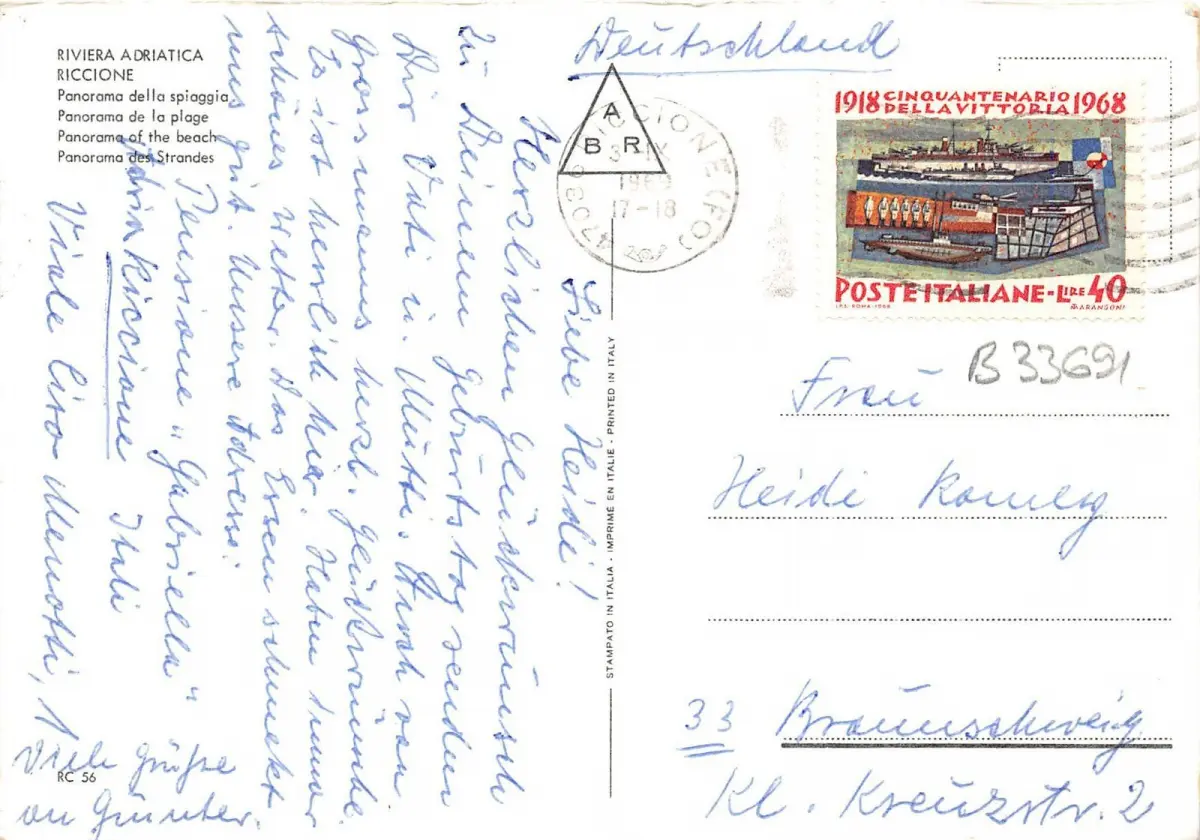 RIVIERA ADRIATICA
RICCIONE
Panorama della spiaggia
Panorama de la plage
Panorama of the beach
Panorama des Strandes
Liebe Heidi!
Herzlichen Glückwunsch
zu Deinem Geburtstag senden
Dir Vati u. Mutti. Auch von
Grossmama herzl. Glückwünsche.
Es ist herrlich hier. Haben immer
schönes Wetter. Das Essen schmeckt
uns gut. Unsere Adress:
Pensione "Gabriella"
Riccione Itali
Viale Ciro Menotti, 1
Viele Grüße
an Günter.
RC 56
STAMPATO IN ITALIA - IMPRIME EN ITALIE - PRINTED IN ITALY
A
B R
RICCIONE (FO)
17-18
47036
Deutschland
1918 CINQUANTENARIO DELLA VITTORIA 1968
POSTE ITALIANE - LIRE 40
I.P.S. ROMA-1968 MARANGONI
B33691
Frau
Heidi
33 Braunschweig
Kl. Kreuzstr. 2